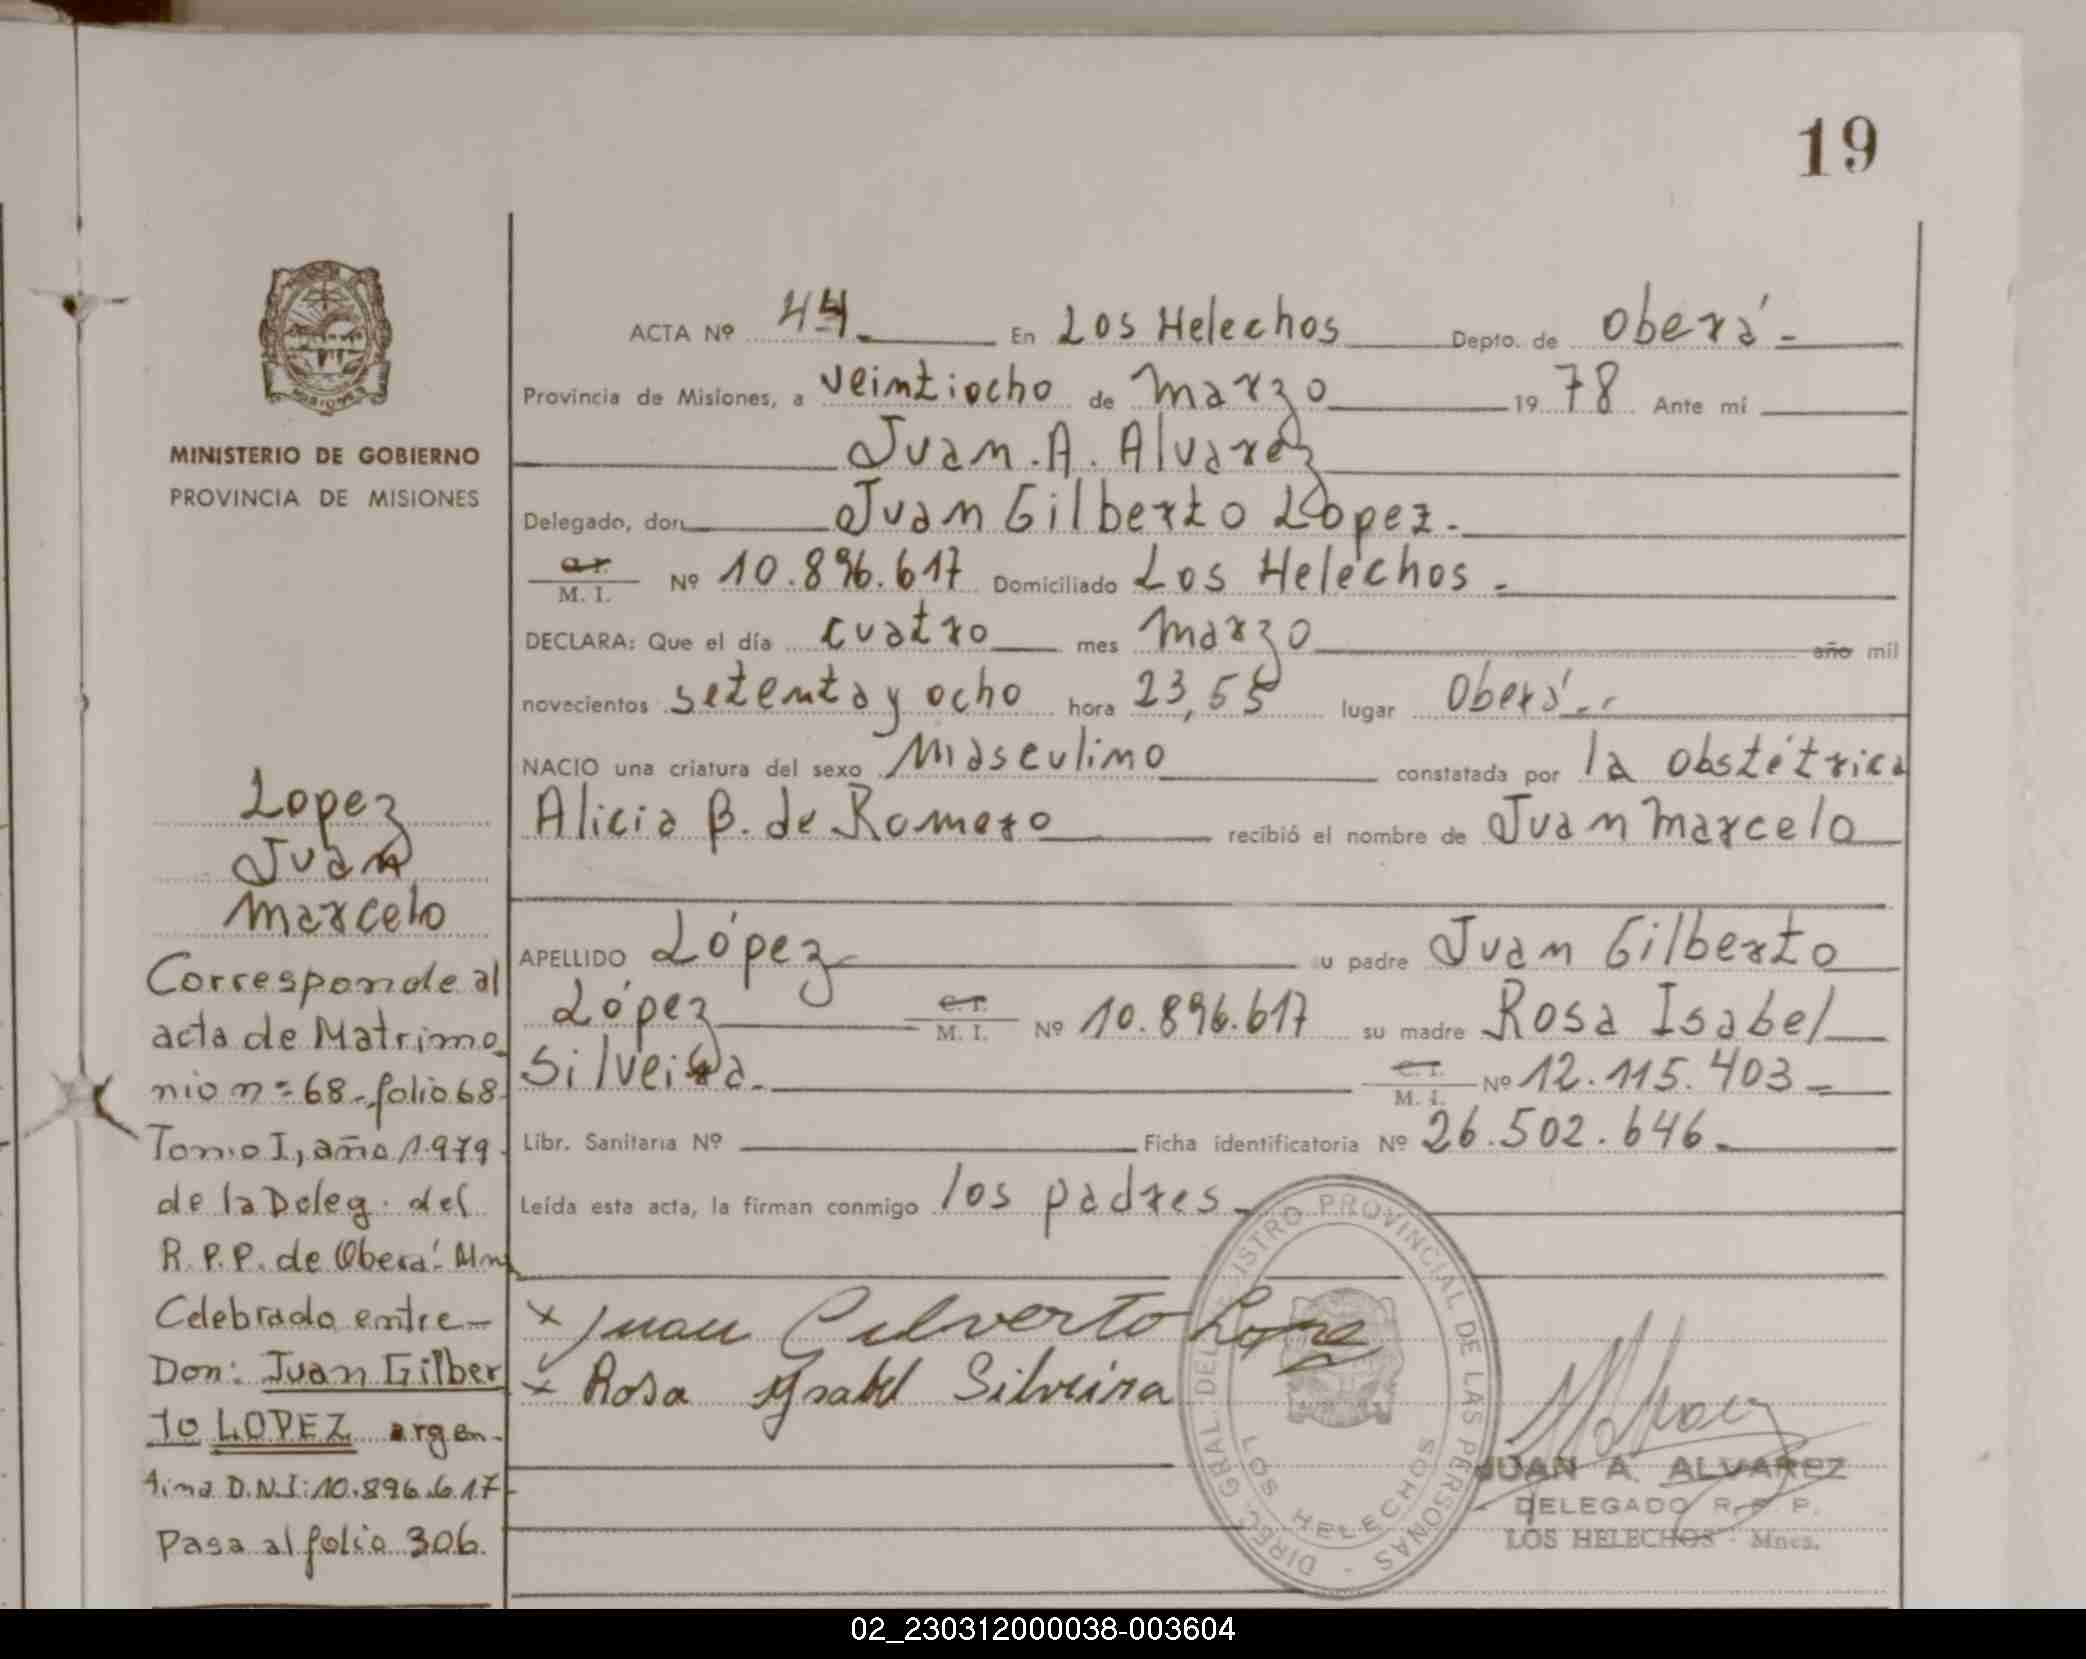 19
MINISTERIO DE GOBIERNO
PROVINCIA DE MISIONES
Lopez
Juan
Marcelo
Corresponde al
acta de Matrimo
nio n= 68 - folio 68
Tomo I, año 1.979
de la Deleg. del
R.P.P. de Oberá-
Celebrado entre-
Don: Juan Gilber
to LOPEZ argen-
tino D.N.I: 10.896.617
Pasa al folio 306.
ACTA Nº 44 En Los Helechos Depto. de Oberá -
Provincia de Misiones, a veintiocho de Marzo 19 78 Ante mí
Juan. A. Alvarez
Delegado, don Juan Gilberto Lopez.
M. I. Nº 10.896.617 Domiciliado Los Helechos -
DECLARA: Que el día cuatro mes Marzo año mil
novecientos setenta y ocho hora 23,55 lugar Oberá
NACIO una criatura del sexo Masculino constatada por la Obstétrica
Alicia B. de Romero recibió el nombre de Juan Marcelo
APELLIDO López su padre Juan Gilberto
López C. I. M. I. Nº 10.896.617 su madre Rosa Isabel
Silveira. C. I. M. I. Nº 12.115.403
Libr. Sanitaria Nº Ficha identificatoria Nº 26.502.646
Leída esta acta, la firman conmigo los padres
x Juan Gilverto Lopez
x Rosa Ysabel Silveira
DIREC. GRAL. DEL REGISTRO PROVINCIAL DE LAS PERSONAS -
LOS HELECHOS
JUAN A. ALVAREZ
DELEGADO R. P. P.
LOS HELECHOS - Mnes.
02_230312000038-003604